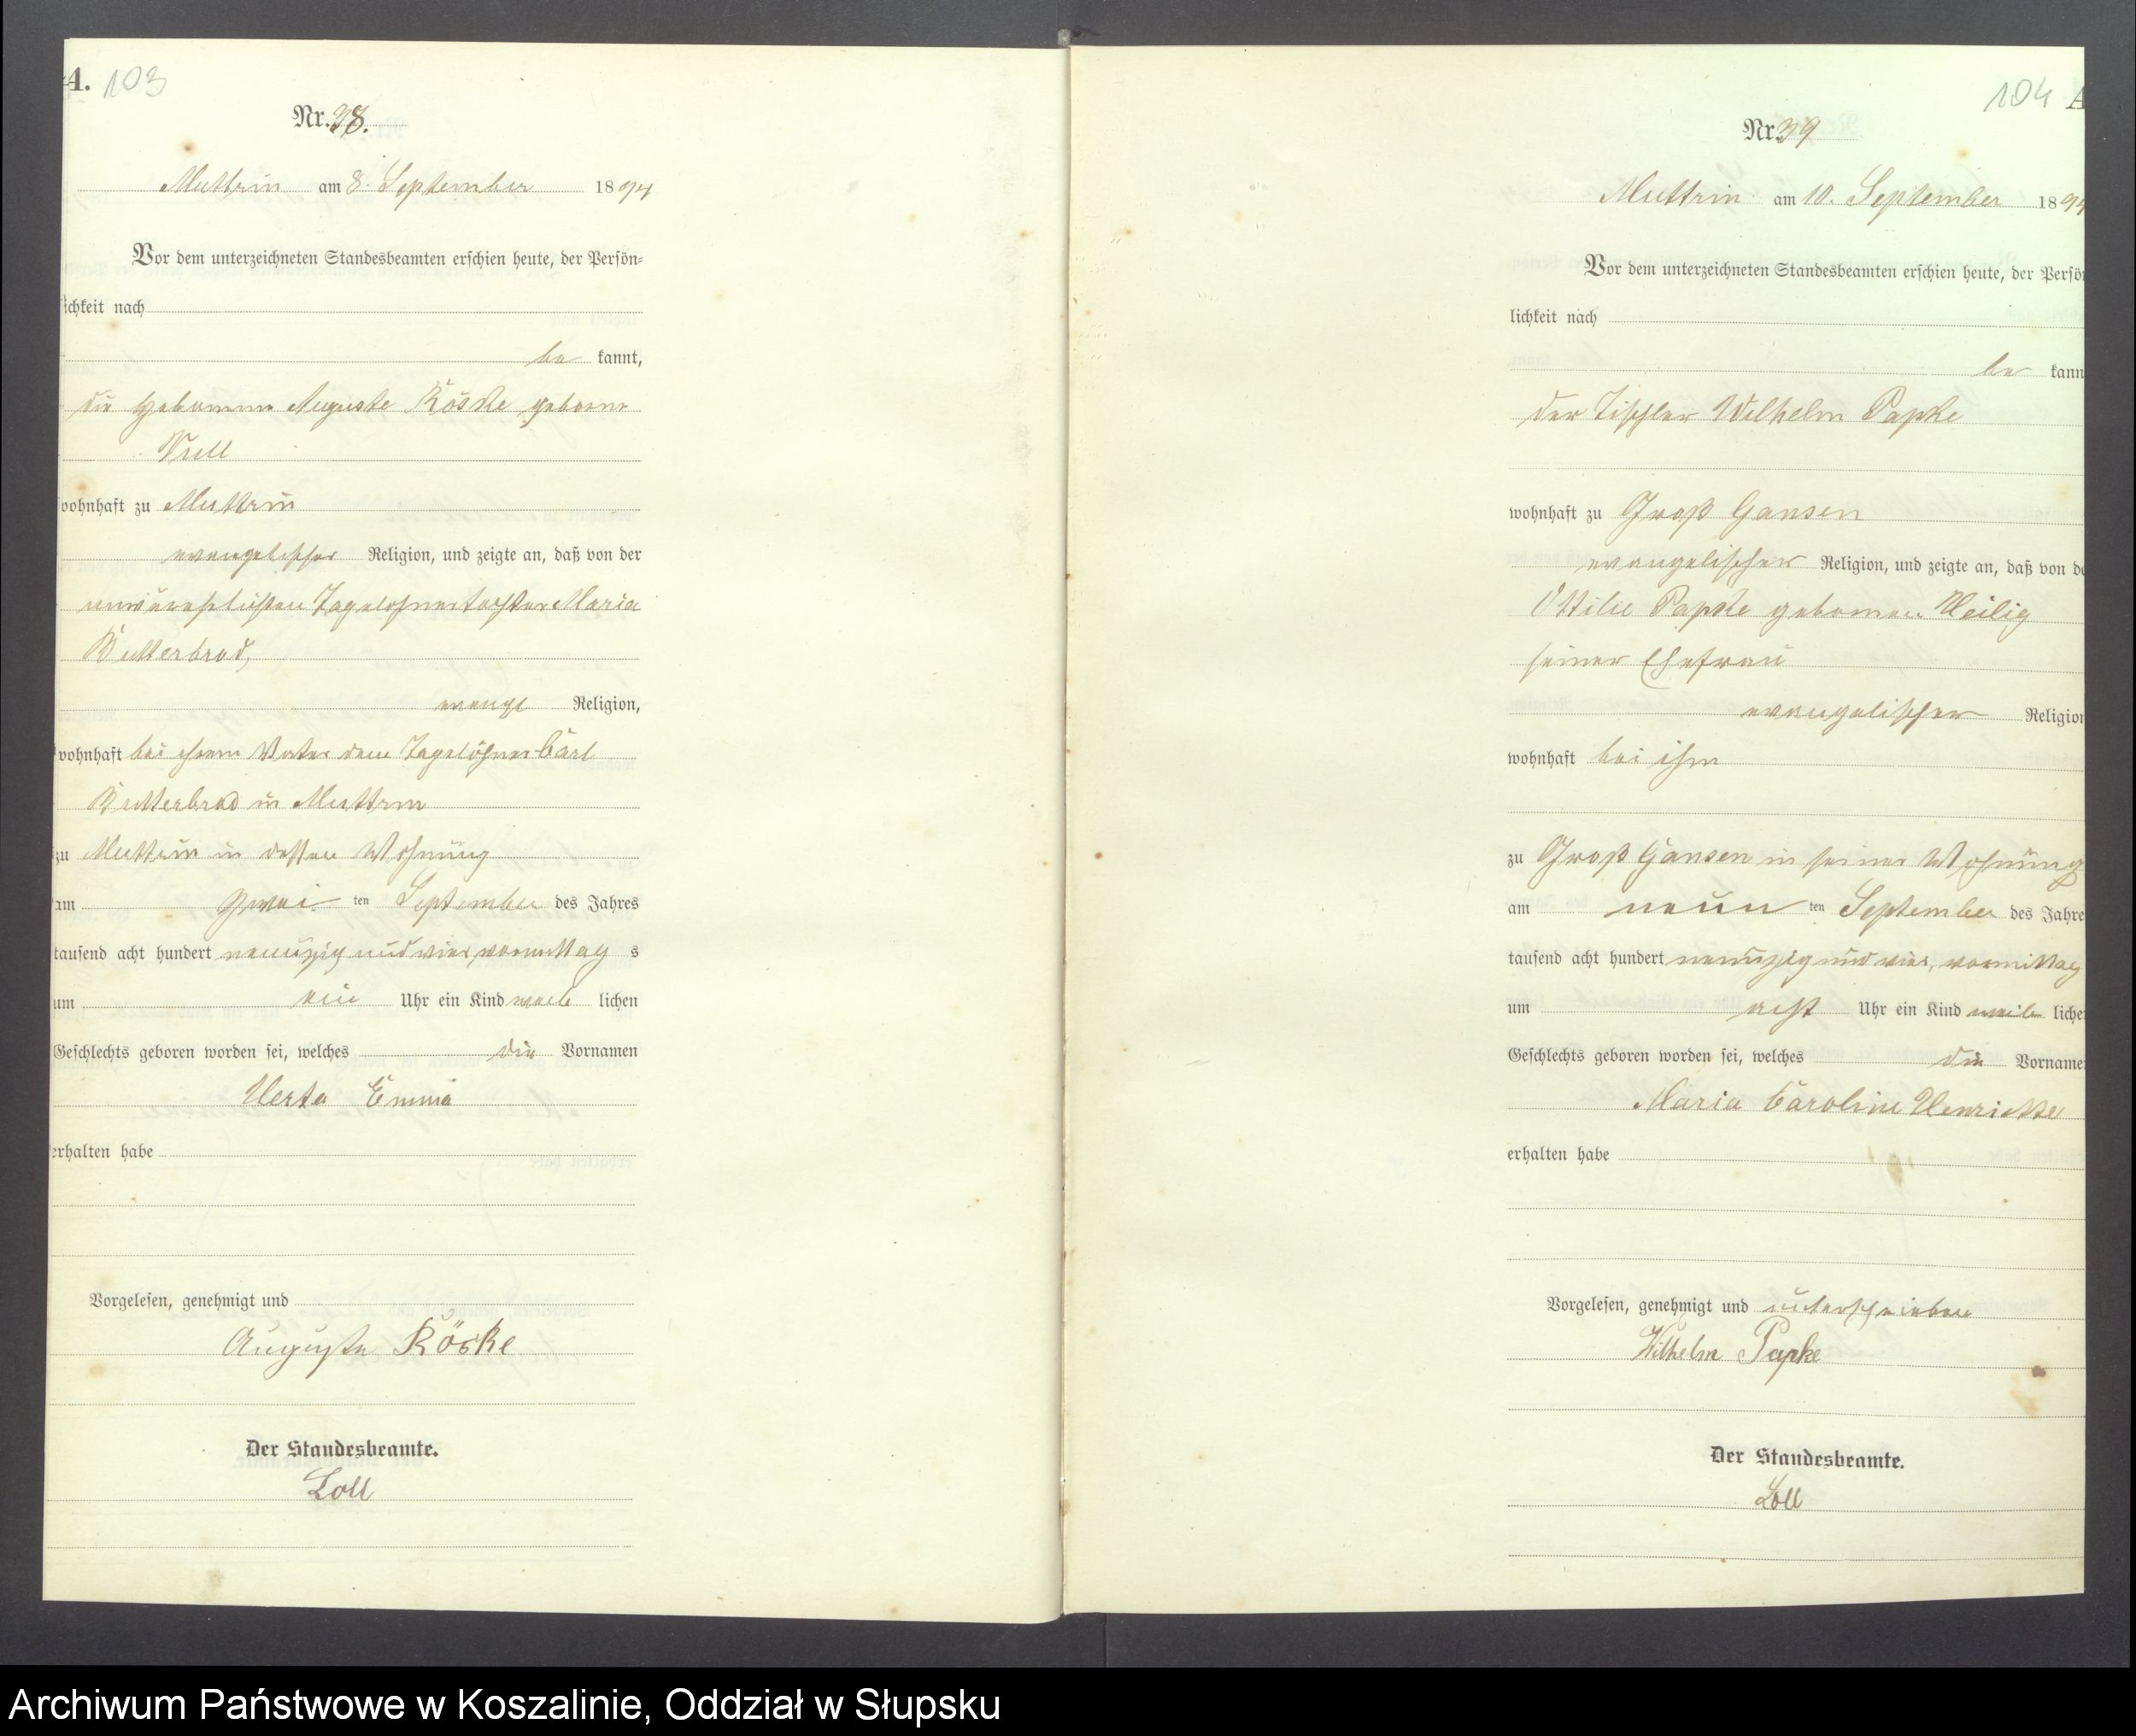 A. 103
Nr. 38.
Muttrin am 8. September 1894
Vor dem unterzeichneten Standesbeamten erschien heute, der Persön-
lichkeit nach
be kannt,
die Hebamme Auguste Röske geborne
Krell
wohnhaft zu Muttrin
evangelischer Religion, und zeigte an, daß von der
unverehelichten Tagelöhnertochter Maria
Butterbrod,
evangl Religion,
wohnhaft bei ihrem Vater dem Tagelöhner Carl
Butterbrod in Muttrin
zu Muttrin in dessen Wohnung
am zwei ten September des Jahres
tausend acht hundert neunzig und vier, vormittag s
um ein Uhr ein Kind weib lichen
Geschlechts geboren worden sei, welches die Vornamen
Herta Emma
erhalten habe
Vorgelesen, genehmigt und
Auguste Röske
Der Standesbeamte.
Loll
104 A
Nr. 39
Muttrin am 10. September 1894
Vor dem unterzeichneten Standesbeamten erschien heute, der Persön
lichkeit nach
be kann
der Tischler Wilhelm Papke
wohnhaft zu Groß Gansen
evangelischer Religion, und zeigte an, daß von de
Ottilie Papke gebornen Heilig
seiner Ehefrau
evangelischer Religion
wohnhaft bei ihm
zu Groß Gansen in seiner Wohnung
am neun ten September des Jahre
tausend acht hundert neunzig und vier, vormittag
um acht Uhr ein Kind weib liche
Geschlechts geboren worden sei, welches die Vorname
Maria Caroline Henriette
erhalten habe
Vorgelesen, genehmigt und unterschrieben
Wilhelm Papke
Der Standesbeamte.
Loll
Archiwum Państwowe w Koszalinie, Oddział w Słupsku